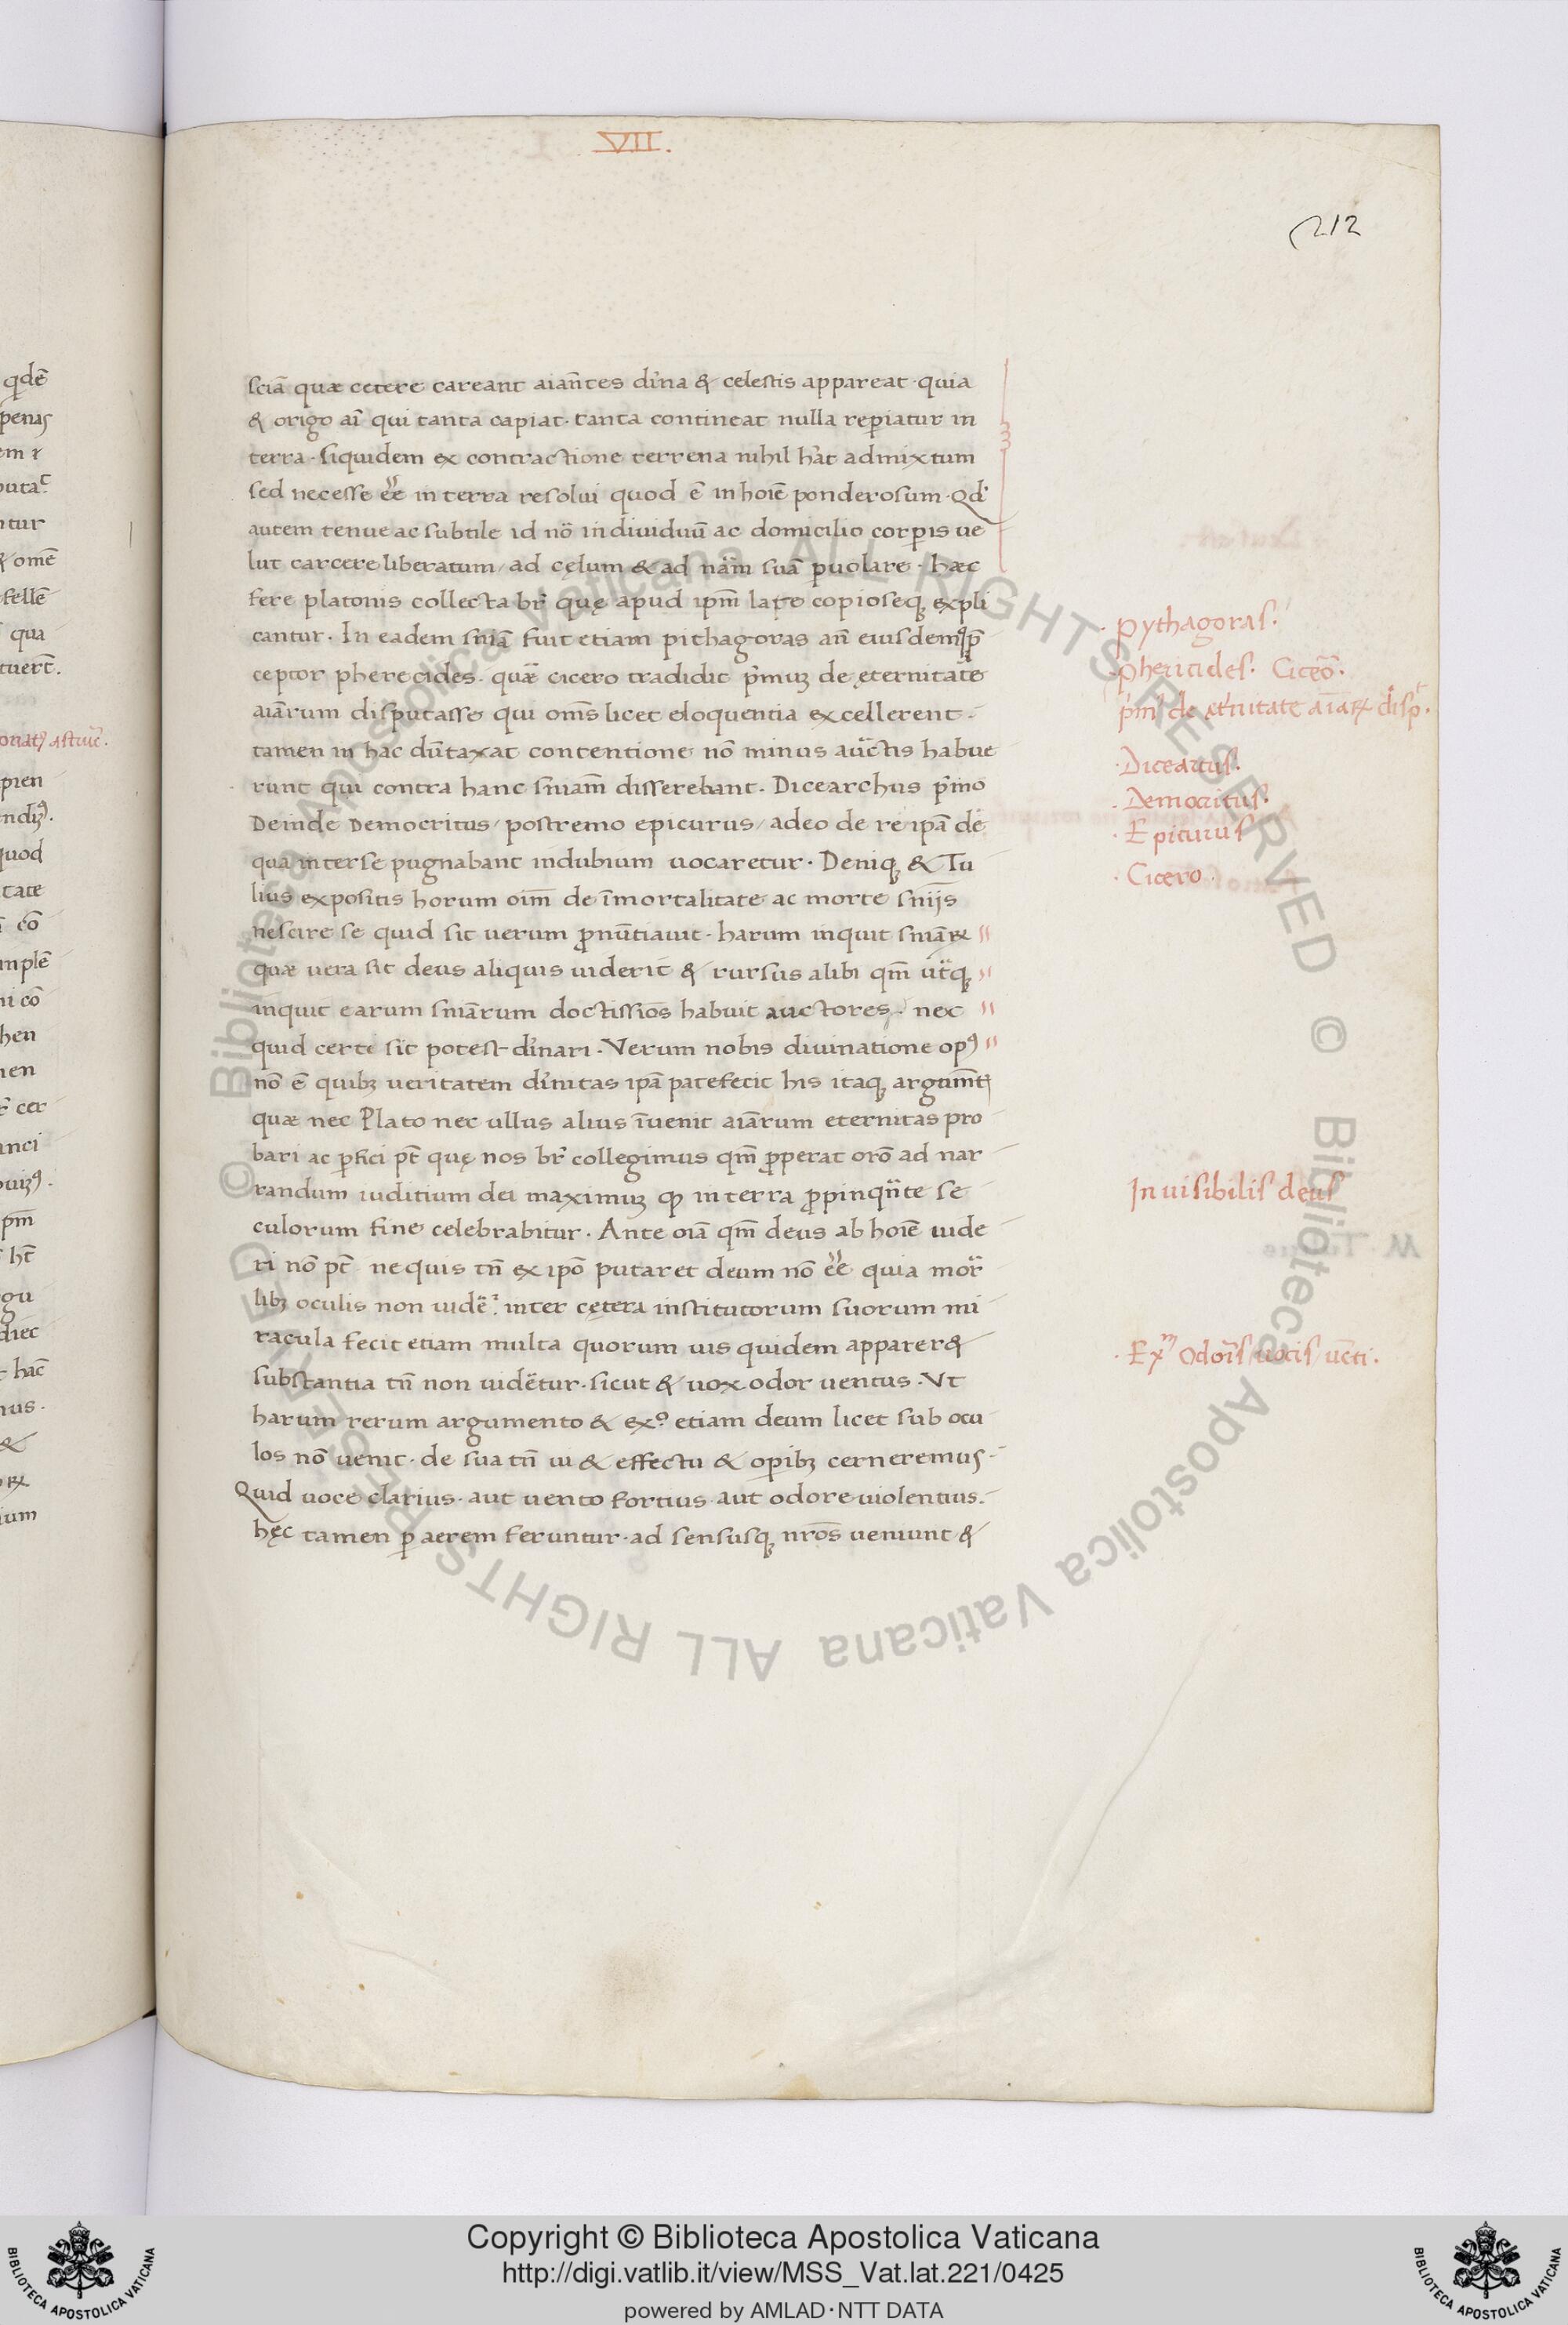 VII.
212
sciā quæ cetere careant aiān̄tes diỉna & celestis appareat · quia
& origo aī qui tanta capiat · tanta contineat nulla rep̱iatur in
terra · siquidem ex contractione terrena nihil hāt admixtum
sed necesse ēē in terra resolui quod ē in hoiē ponderosum · Qd'
autem tenue ac subtile id nō indiuiduū ac domicilio corp̱is ue
lut carcere liberatum / ad cęlum & ad nām suā p̱uolare · hæc
fere platonis collecta br̄ quę apud ip̄m late copioseq; expli
cantur · In eadem sn̄iā fuit etiam pithagoras an̄ eiusdemq; p̄
ceptor pherecides · quē cicero tradidit p̄muȝ de ęternitate
aiārum disputasse qui om̄s licet eloquentia excellerent ·
tamen in hac dūtaxat contentione nō minus auctīs habue
runt qui contra hanc sn̄iam disserebant · Dicearchus p̄mo
Deinde Democritus / postremo epicurus / adeo de re ip̄a de
qua inter se pugnabant indubium uocaretur · Deniq; & Tu
lius expositis horum oīm de īmortalitate ac morte sn̄ijs
nescire se quid sit uerum p̱nūtiauit · harum inquit sn̄iāꝝ
quæ uera sit deus aliquis uiderit & rursus alibi qm̄ ut̄q;
inquit earum sn̄iārum doctissīos habuit auctores · nec
quid certe sit potest diỉnari · Verum nobis diuinatione op⁹
nō ē quibȝ ueritatem diỉnitas ip̄a patefecit his itaq; argum̄tꝭ
quæ nec Plato nec ullus alius īuenit aiārum eternitas pro
bari ac p̱fici pt̄ quę nos br̄ collegimus qm̄ p̱perat orō ad nar
randum iuditium dei maximuȝ qđ in terra p̱pinqn̄te se
culorum fine celebrabitur · Ante oīā qm̄ deus ab hoiē uide
ri nō pt̄ ne quis tn̄ ex ip̄o putaret deum nō ēē quia mor̄
libȝ oculis non uidēt̄ inter cętera institutorum suorum mi
racula fecit etiam multa quorum uis quidem apparer&
substantia tn̄ non uidētur · sicut & uox odor uentus · Vt
harum rerum argumento & ex° etiam deum licet sub ocu
los nō uenit · de sua tn̄ ui & effectu & op̱ibȝ cerneremus ·
Quid uoce clarius · aut uento fortius aut odore uiolentius ·
hęc tamen p̱ aerem feruntur · ad sensusq; nrōs ueniunt &
· pythagoras ·
· phericides · Ciceō ·
p̄m̄ de ætn̄itate aiāꝝ disp̄ ·
· Dicearcus ·
· Democritus ·
· Epicurus
· Cicero ·
Inuisibilis deus
· Exᵐ Odoris / uocis / uēti ·
Copyright © Biblioteca Apostolica Vaticana
http://digi.vatlib.it/view/MSS_Vat.lat.221/0425
powered by AMLAD · NTT DATA
BIBLIOTECA APOSTOLICA VATICANA
BIBLIOTECA APOSTOLICA VATICANA